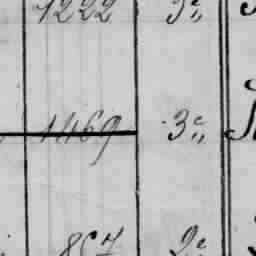 1222 3e
1469 3e
867 2e